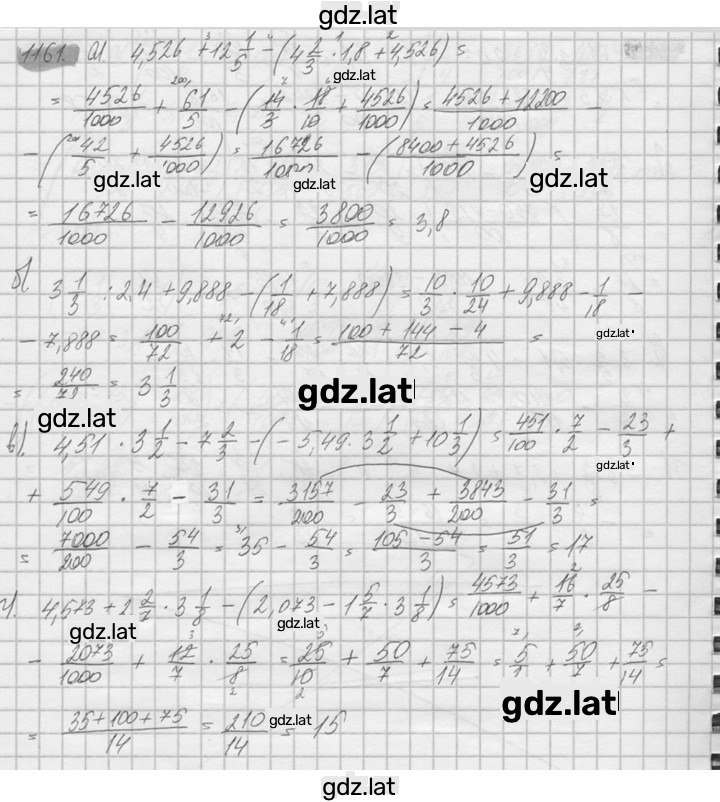 gdz.lat
1161. а). 4,526 + 12 1/5 - (4 2/3 · 1,8 + 4,526) =
gdz.lat
= 4526/1000 + 61/5 - (14/3 · 18/10 + 4526/1000) = (4526 + 12200)/1000 -
- (42/5 + 4526/1000) = 16726/1000 - ((8400 + 4526)/1000) =
gdz.lat gdz.lat gdz.lat
= 16726/1000 - 12926/1000 = 3800/1000 = 3,8
б). 3 1/3 : 2,4 + 9,888 - (1/18 + 7,888) = 10/3 · 10/24 + 9,888 - 1/18 -
- 7,888 = 100/72 + 2 - 1/18 = (100 + 144 - 4)/72 =
gdz.lat
= 240/72 = 3 1/3
gdz.lat
в). 4,51 · 3 1/2 - 7 2/3 - (-5,49 · 3 1/2 + 10 1/3) = 451/100 · 7/2 - 23/3 +
gdz.lat
+ 549/100 · 7/2 - 31/3 = 3157/200 - 23/3 + 3843/200 - 31/3 =
= 7000/200 - 54/3 = 35 - 54/3 = (105 - 54)/3 = 51/3 = 17
г). 4,573 + 2 2/7 · 3 1/8 - (2,073 - 1 5/7 · 3 1/8) = 4573/1000 + 16/7 · 25/8 -
gdz.lat gdz.lat
- 2073/1000 + 12/7 · 25/8 = 25/10 + 50/7 + 75/14 = 5/1 + 50/7 + 75/14 =
gdz.lat
= (35 + 100 + 75)/14 = 210/14 = 15
gdz.lat
gdz.lat